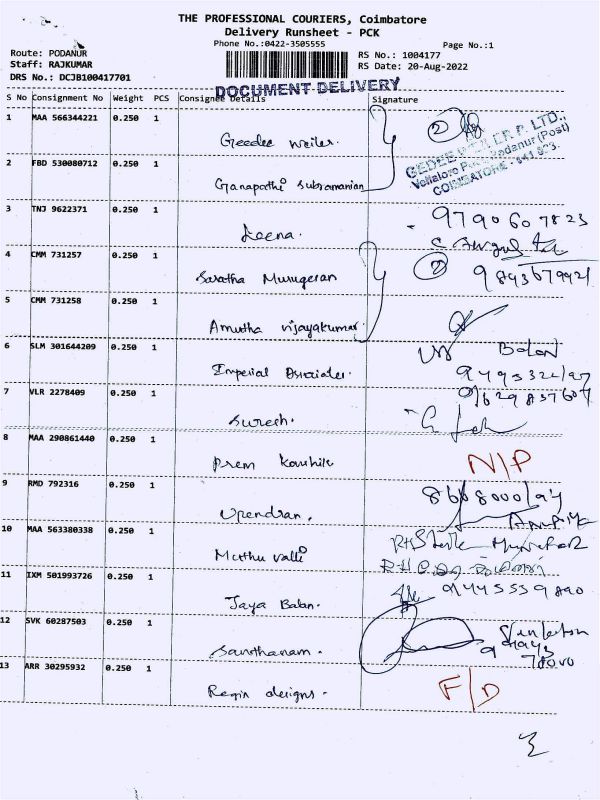 THE PROFESSIONAL COURIERS, Coimbatore
Delivery Runsheet - PCK
Phone No.:0422-3505555
Page No.:1
Route: PODANUR
Staff: RAJKUMAR
DRS No.: DCJB100417701
RS No.: 1004177
RS Date: 20-Aug-2022
DOCUMENT DELIVERY
S No Consignment No Weight PCS Consignee Details Signature
1 MAA 566344221 0.250 1
Geedee weiler. 2
GEDEE WEILER P. LTD.,
Vellalore Podanur (Post)
COIMBATORE - 641 023.
2 FBD 530080712 0.250 1
Ganapathi Subramanian
3 TNJ 9622371 0.250 1
Leena. 9790607823
4 CMM 731257 0.250 1
Saratha Murugesan 2 9893679921
5 CMM 731258 0.250 1
Amutha Vijayakumar
6 SLM 301644209 0.250 1
Imperial Associates.
7 VLR 2278409 0.250 1
Suresh. 9629857607
8 MAA 290861440 0.250 1
Prem N/P
9 RMD 792316 0.250 1
Upendran.
10 MAA 563380338 0.250 1
Muthu valli
11 IXM 501993726 0.250 1
Jaya Balan. 94445559890
12 SVK 60287503 0.250 1
Santhanam.
13 ARR 30295932 0.250 1
Regin designs. F/D